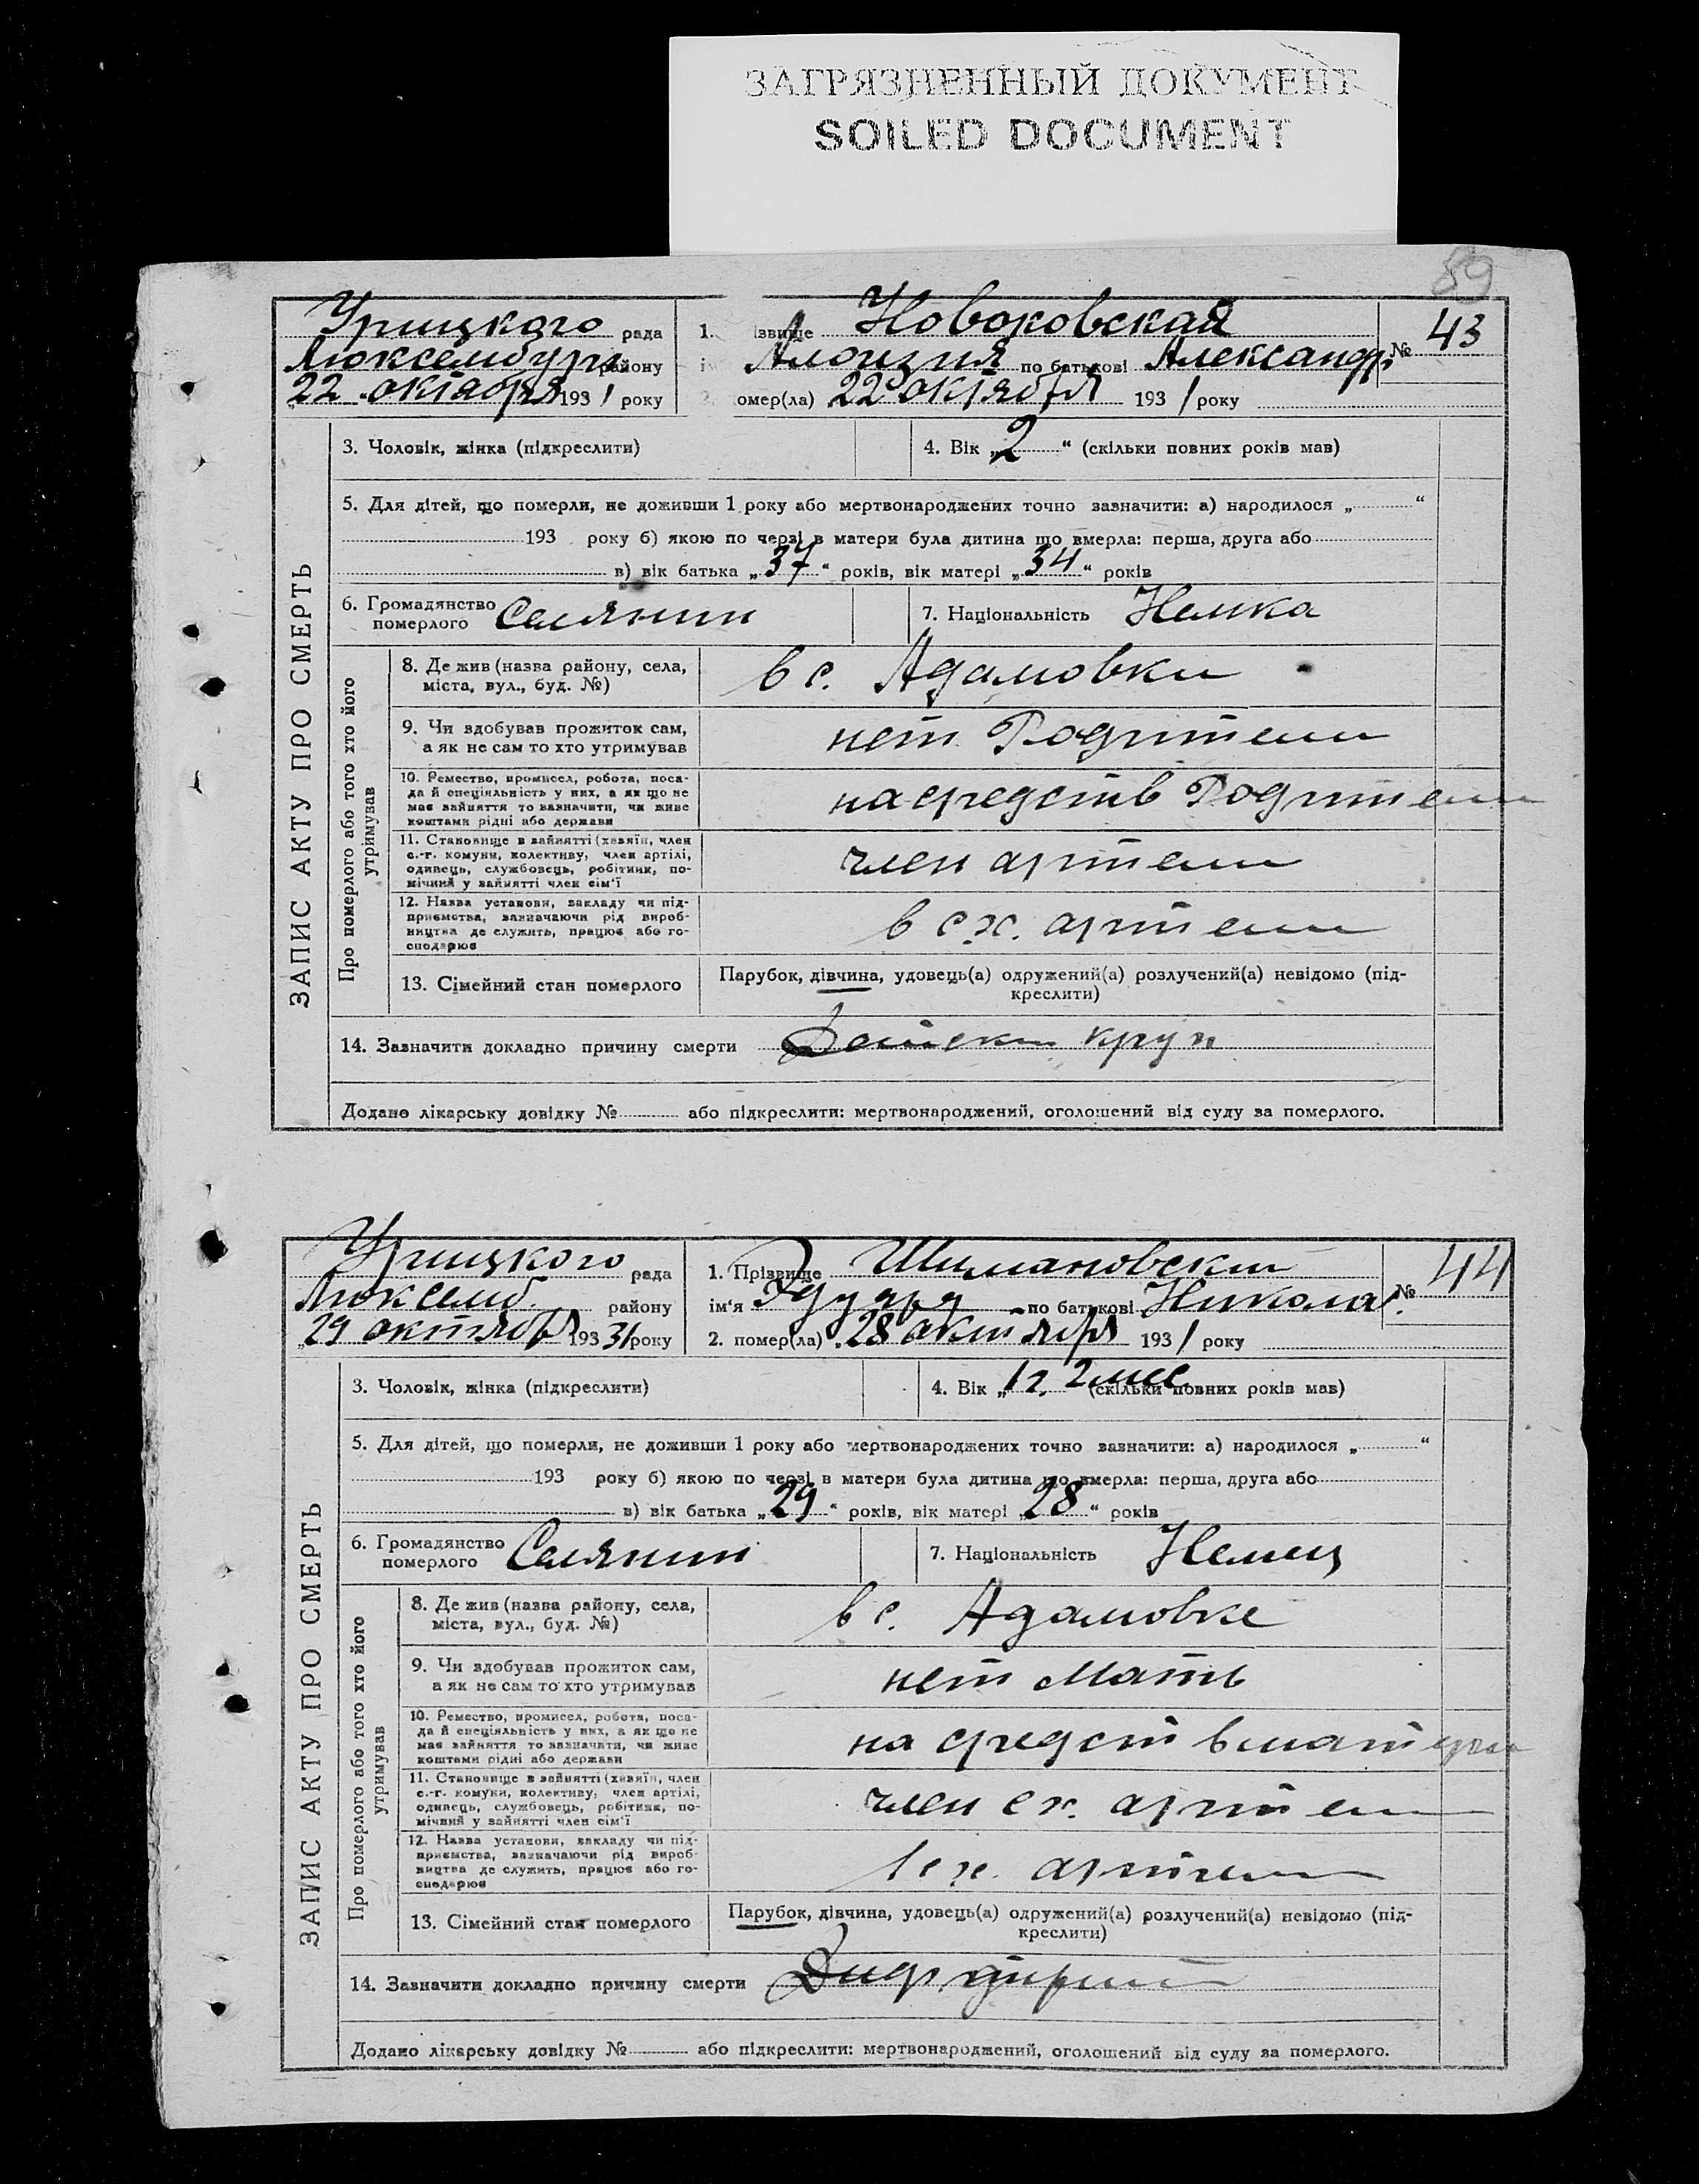 ЗАГРЯЗНЕННЫЙ ДОКУМЕНТ
SOILED DOCUMENT
59
Урицкого рада
Люксембург району
22 октября 1931 року
1. ізвище Новоковская
Алоизия по батькові Александр.
омер(ла) 22 октября 1931 року
№ 43
ЗАПИС АКТУ ПРО СМЕРТЬ
3. Чоловік, жінка (підкреслити)
4. Вік „2“ (скільки повних років мав)
5. Для дітей, що померли, не доживши 1 року або мертвонароджених точно зазначити: а) народилося „ “
193 року б) якою по черзі в матери була дитина що вмерла: перша, друга або
в) вік батька „37“ років, вік матері „34“ років
6. Громадянство померлого Селянин
7. Національність Немка
Про померлого або того хто його утримував
8. Де жив (назва району, села,
міста, вул., буд. №)
в с. Адамовки
9. Чи здобував прожиток сам,
а як не сам то хто утримував
нет Родители
10. Ремество, промисел, робота, поса-
да й спеціяльність у них, а як що не
має зайняття то зазначити, чи живе
коштами рідні або держави
на средств Родители
11. Становище в зайнятті (хазяїн, член
с.-г. комуни, колективу, член артілі,
одинець, службовець, робітник, по-
мічний у зайнятті член сім'ї
член артели
12. Назва установи, закладу чи під-
приємства, зазначаючи рід вироб-
ництва де служить, працює або го-
сподарює
в с.х. артели
13. Сімейний стан померлого
Парубок, дівчина, удовець(а) одружений(а) розлучений(а) невідомо (під-
креслити)
14. Зазначити докладно причину смерти Детски круп
Додано лікарську довідку № або підкреслити: мертвонароджений, оголошений від суду за померлого.
Урицкого рада
Люксемб. району
„29 октября 193 31 року
1. Прізвище Шимановски
ім'я Эдуард по батькові Никола.
2. помер(ла) „28 октября 1931 року
№ 44
ЗАПИС АКТУ ПРО СМЕРТЬ
3. Чоловік, жінка (підкреслити)
4. Вік „1 г. 2 мес (скільки повних років мав)
5. Для дітей, що померли, не доживши 1 року або мертвонароджених точно зазначити: а) народилося „ “
193 року б) якою по черзі в матери була дитина що вмерла: перша, друга або
в) вік батька „29“ років, вік матері „28“ років
6. Громадянство померлого Селянин
7. Національність Немец
Про померлого або того хто його утримував
8. Де жив (назва району, села,
міста, вул., буд. №)
в с. Адамовке
9. Чи здобував прожиток сам,
а як не сам то хто утримував
нет Мать
10. Ремество, промисел, робота, поса-
да й спеціяльність у них, а як що не
має зайняття то зазначити, чи живе
коштами рідні або держави
на средств матери
11. Становище в зайнятті (хазяїн, член
с.-г. комуни, колективу, член артілі,
одинець, службовець, робітник, по-
мічний у зайнятті член сім'ї
член с х. артели
12. Назва установи, закладу чи під-
приємства, зазначаючи рід вироб-
ництва де служить, працює або го-
сподарює
в с х. артели
13. Сімейний стан померлого
Парубок, дівчина, удовець(а) одружений(а) розлучений(а) невідомо (під-
креслити)
14. Зазначити докладно причину смерти
Додано лікарську довідку № або підкреслити: мертвонароджений, оголошений від суду за померлого.